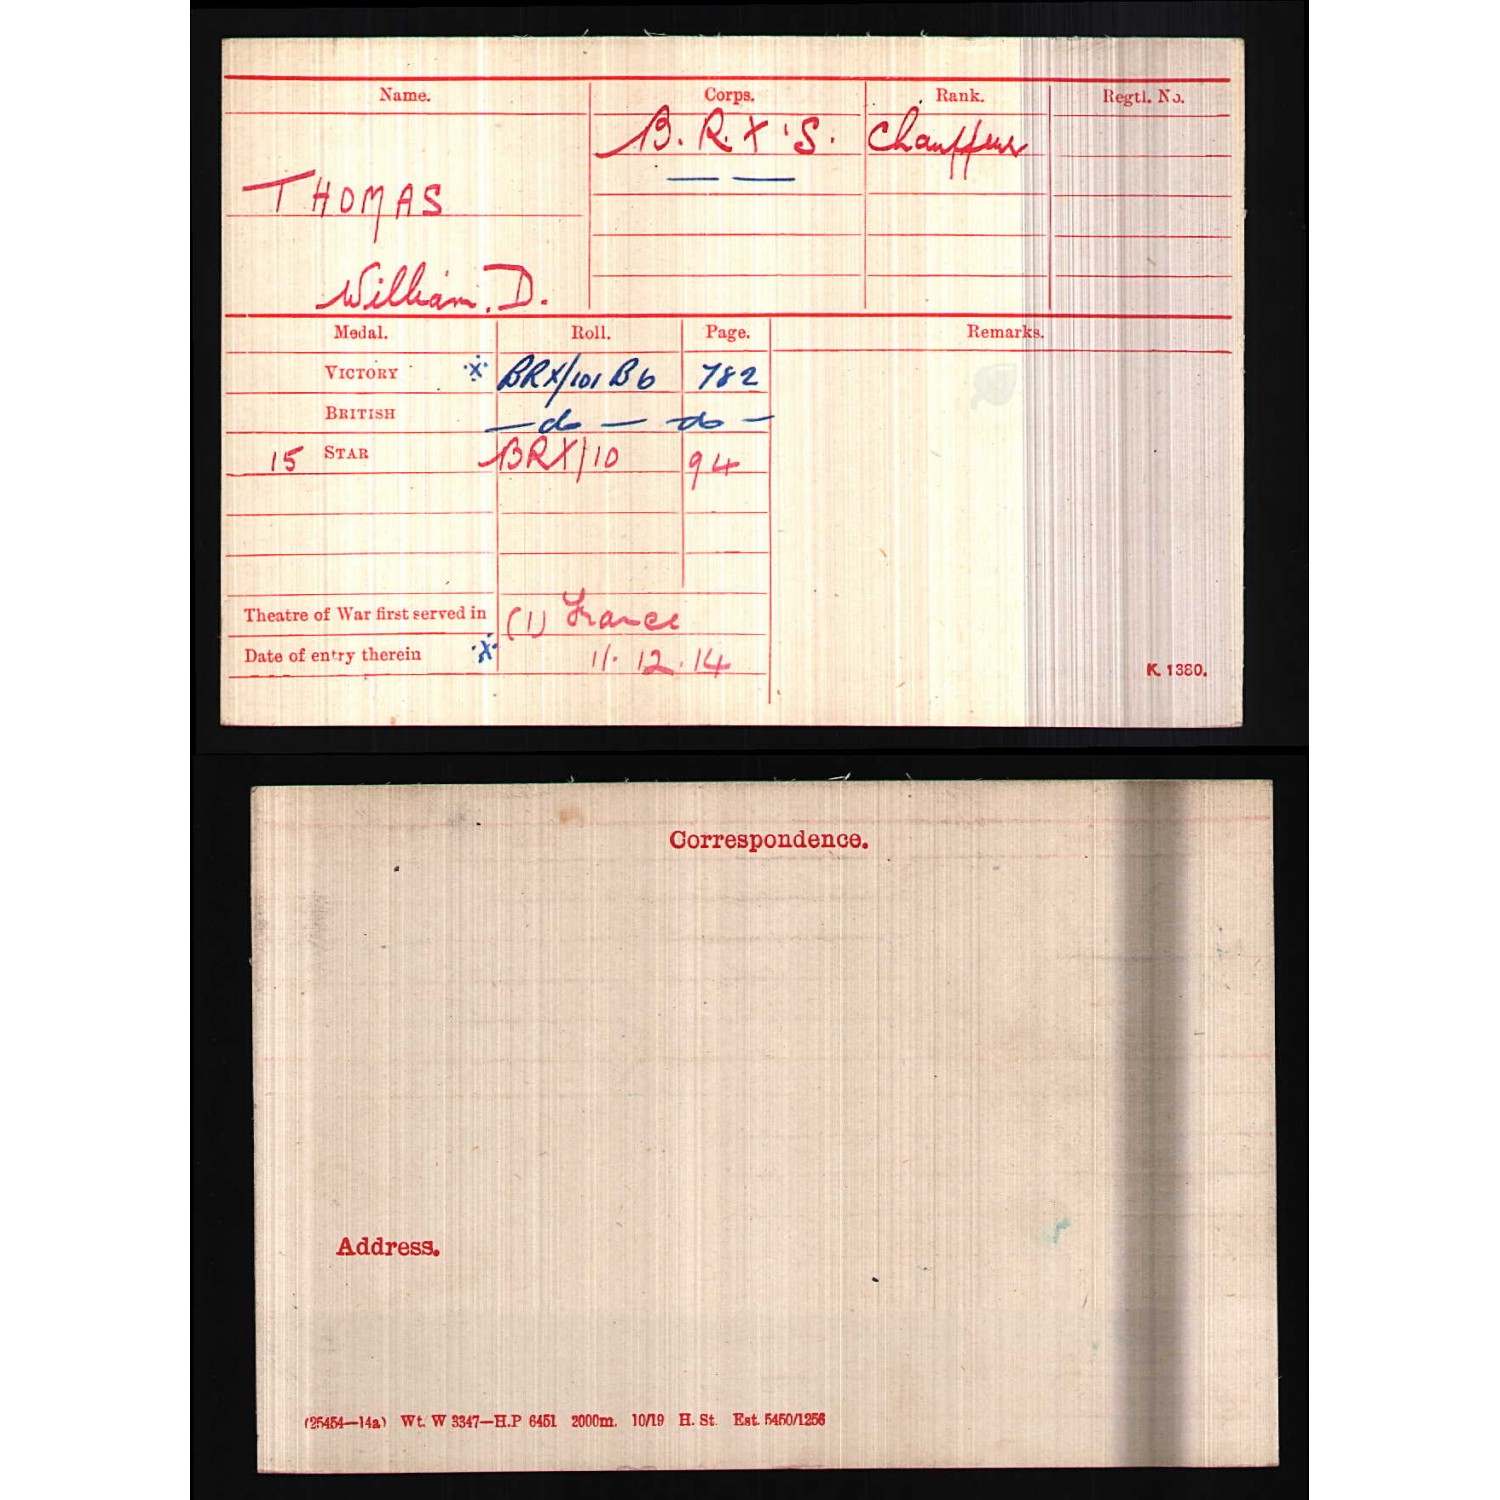 Name. Corps. Rank. Regtl. No.
B. R. X 'S. Chauffeur
THOMAS
William. D.
Medal. Roll. Page. Remarks.
VICTORY BRX/101 B6 782
BRITISH — do — do —
15 STAR BRX/10 94
Theatre of War first served in (1) France
Date of entry therein 11. 12. 14
K. 1380.
Correspondence.
Address.
(25454—14a) Wt. W 3347—H.P 6451 2000m. 10/19 H. St. Est. 5450/1256